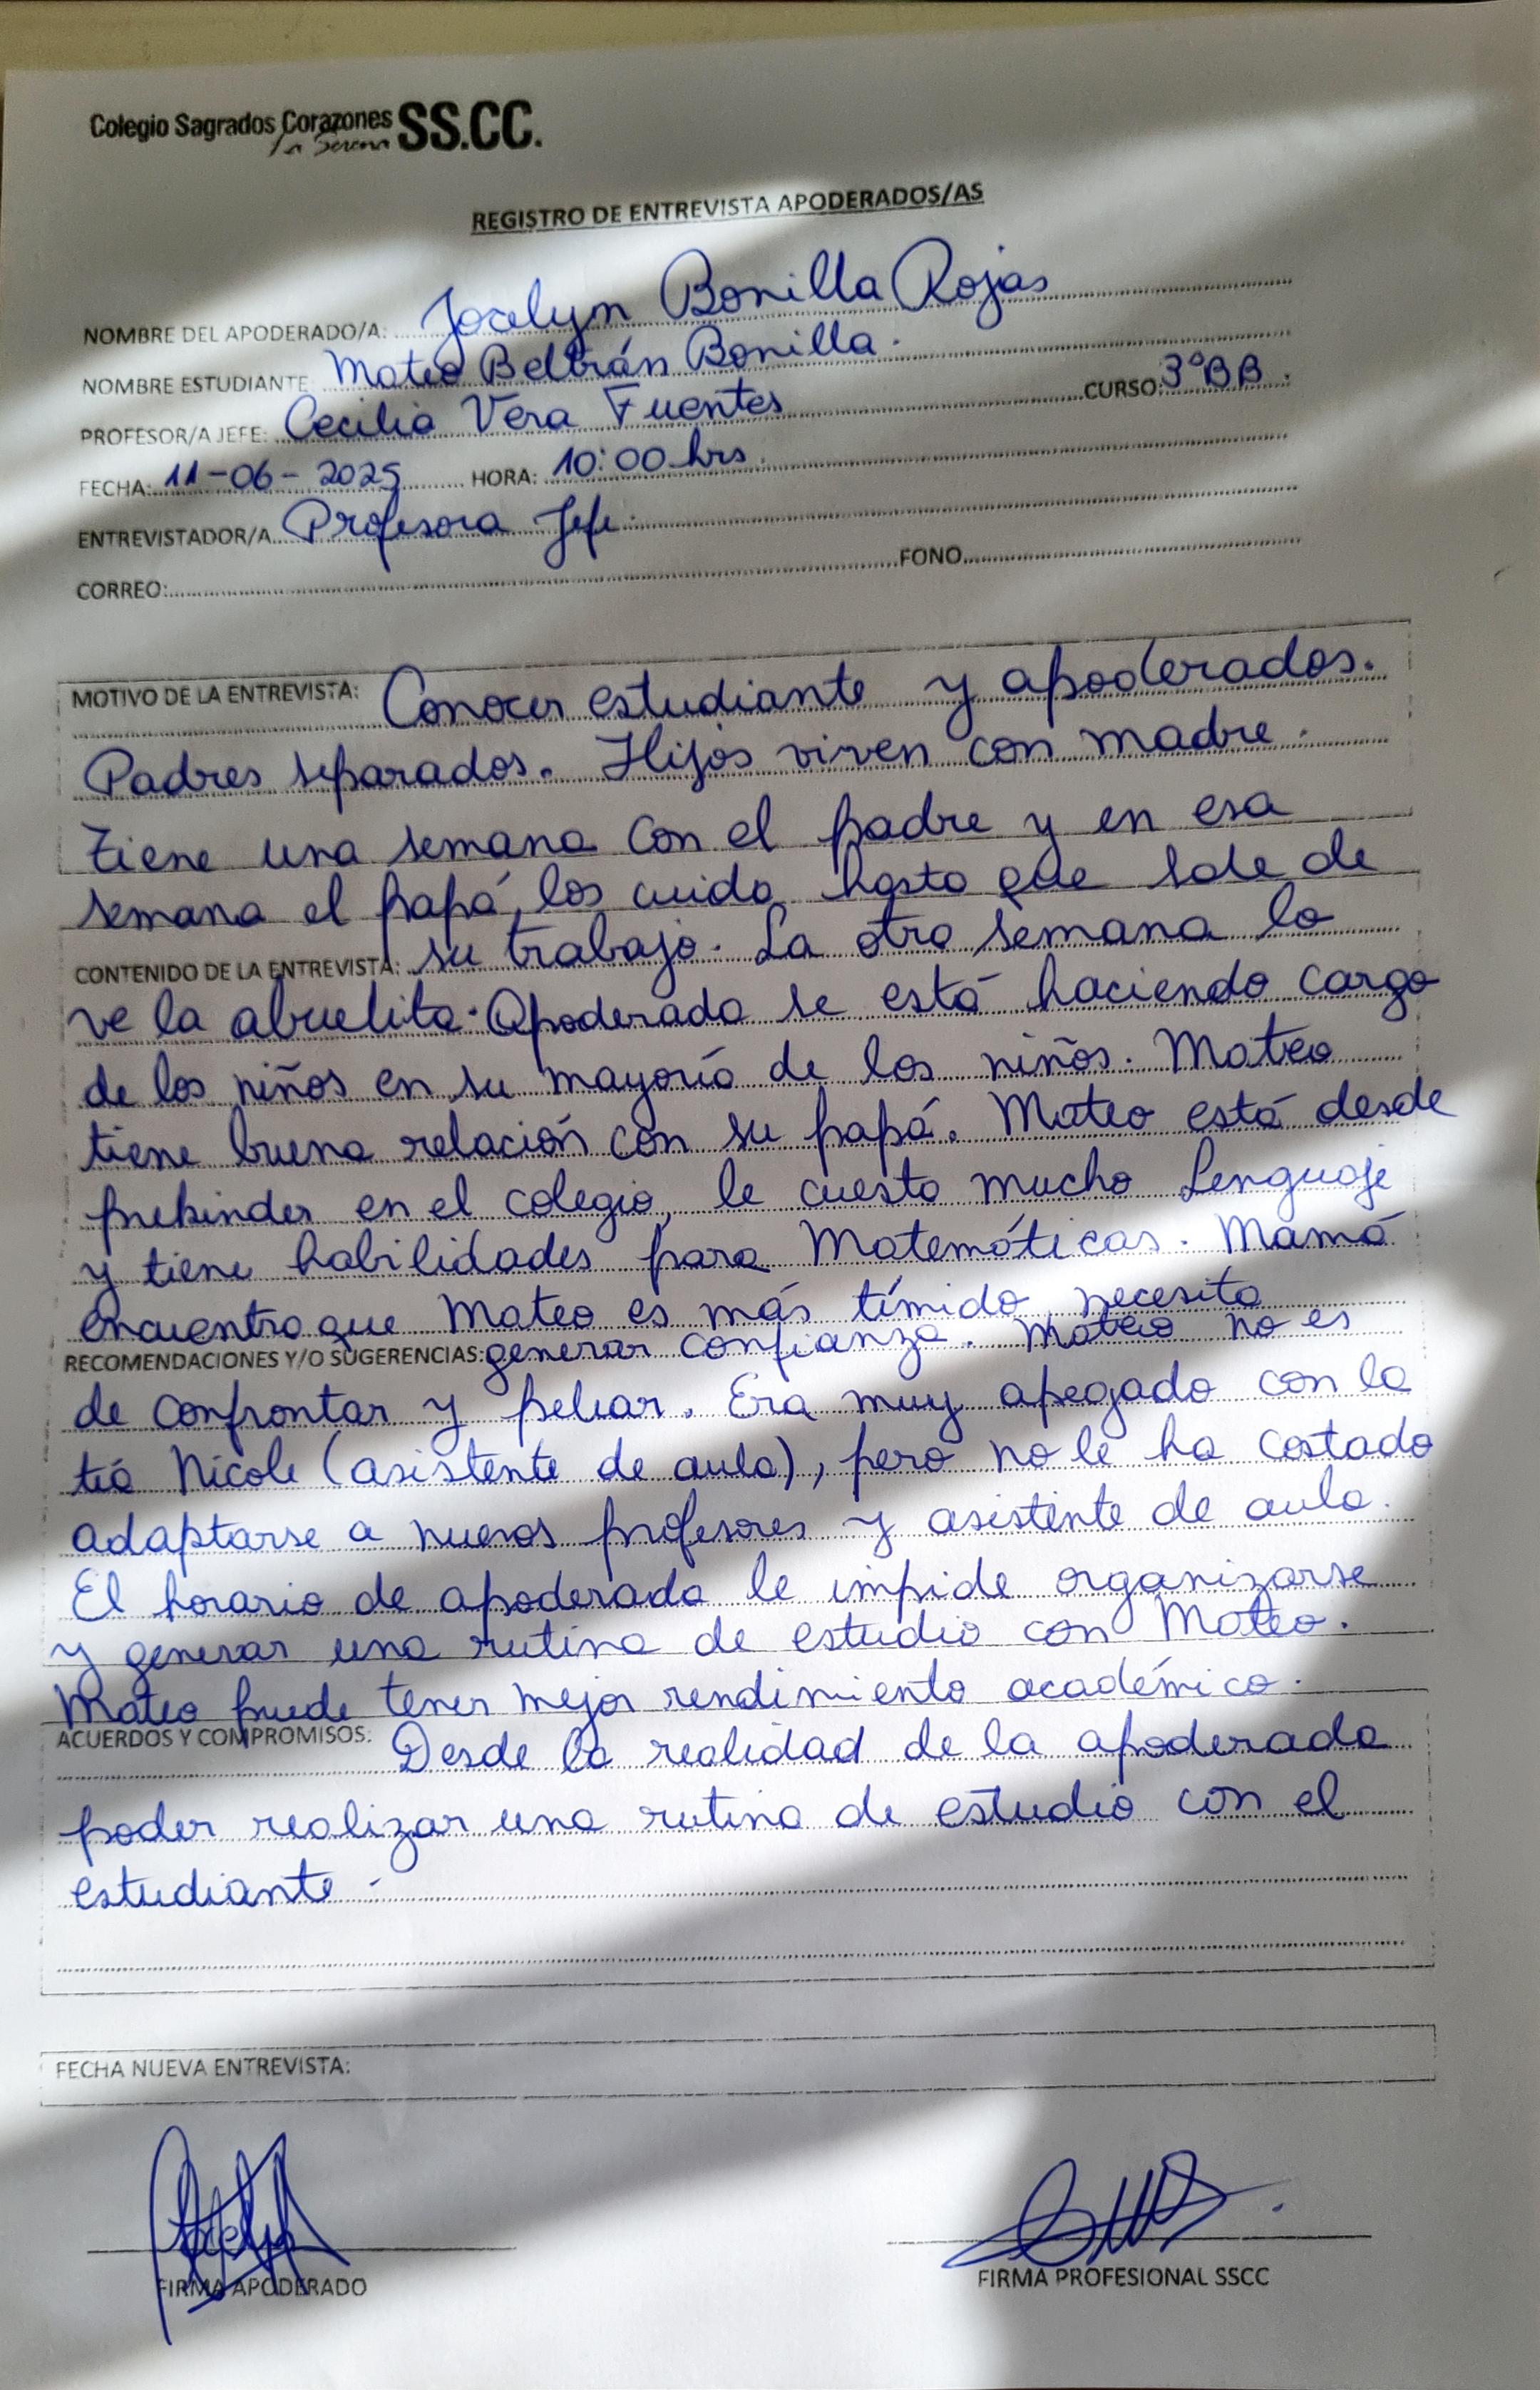 Colegio Sagrados Corazones SS.CC.
La Serena
REGISTRO DE ENTREVISTA APODERADOS/AS
NOMBRE DEL APODERADO/A: Jocelyn Bonilla Rojas
NOMBRE ESTUDIANTE Mateo Beltrán Bonilla.
PROFESOR/A JEFE: Cecilia Vera Fuentes CURSO: 3°BB.
FECHA: 11-06-2025 HORA: 10:00 hrs.
ENTREVISTADOR/A Profesora Jefe.
CORREO: FONO
MOTIVO DE LA ENTREVISTA: Conocer estudiante y apoderados.
Padres separados. Hijos viven con madre.
Tiene una semana con el padre y en esa
semana el papá, los cuida hasta que sale de
CONTENIDO DE LA ENTREVISTA: su trabajo. La otra semana lo
ve la abuelita. Apoderada se está haciendo cargo
de los niños en su mayoría de los niños. Mateo
tiene buena relación con su papá. Mateo está desde
prekinder en el colegio, le cuesta mucho Lenguaje
y tiene habilidades para Matemáticas. Mamá
encuentra que Mateo es más tímido, necesita
RECOMENDACIONES Y/O SUGERENCIAS: generar confianza. Mateo no es
de confrontar y pelear. Era muy apegado con la
tía Nicole (asistente de aula), pero no le ha costado
adaptarse a nuevos profesores y asistente de aula.
El horario de apoderada le impide organizarse
y generar una rutina de estudio con Mateo.
Mateo puede tener mejor rendimiento académico.
ACUERDOS Y COMPROMISOS: Desde la realidad de la apoderada
poder realizar una rutina de estudio con el
estudiante.
FECHA NUEVA ENTREVISTA:
FIRMA APODERADO FIRMA PROFESIONAL SSCC